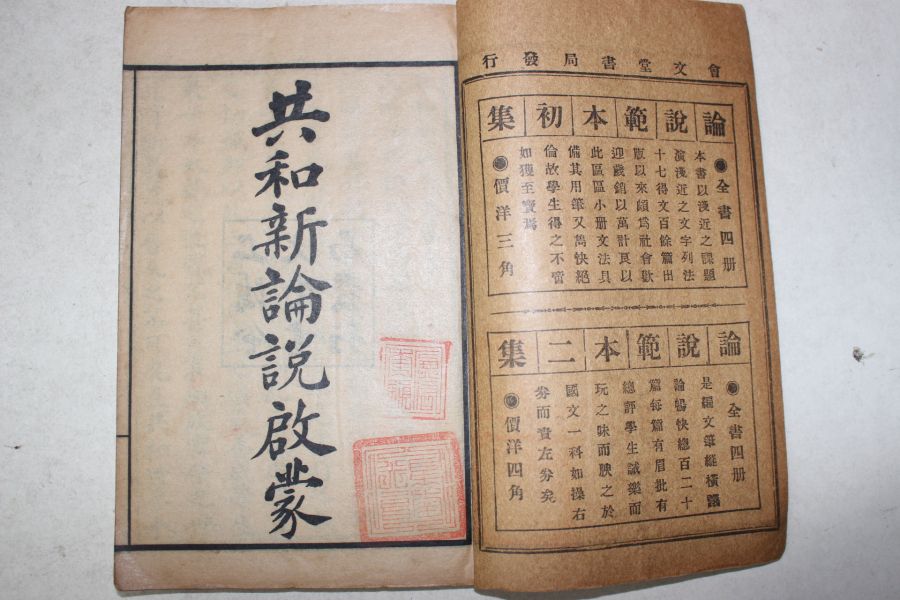 會文堂書局發行
論說範本初集
●全書四册
本書以淺近之課題
演淺近之文字列法
十七得文百餘篇出
版以來頗爲社會歡
迎歲銷以萬計良以
此區區小册文法具
備其用筆又雋快絕
倫故學生得之不啻
如獲至寶焉
●價洋三角
論說範本二集
●全書四册
是編文筆縱橫議
論暢快總百二十
篇每篇有眉批有
總評學生誠樂而
玩之味而腴之於
國文一科如操右
券而責左券矣
●價洋四角
共和新論說啟蒙